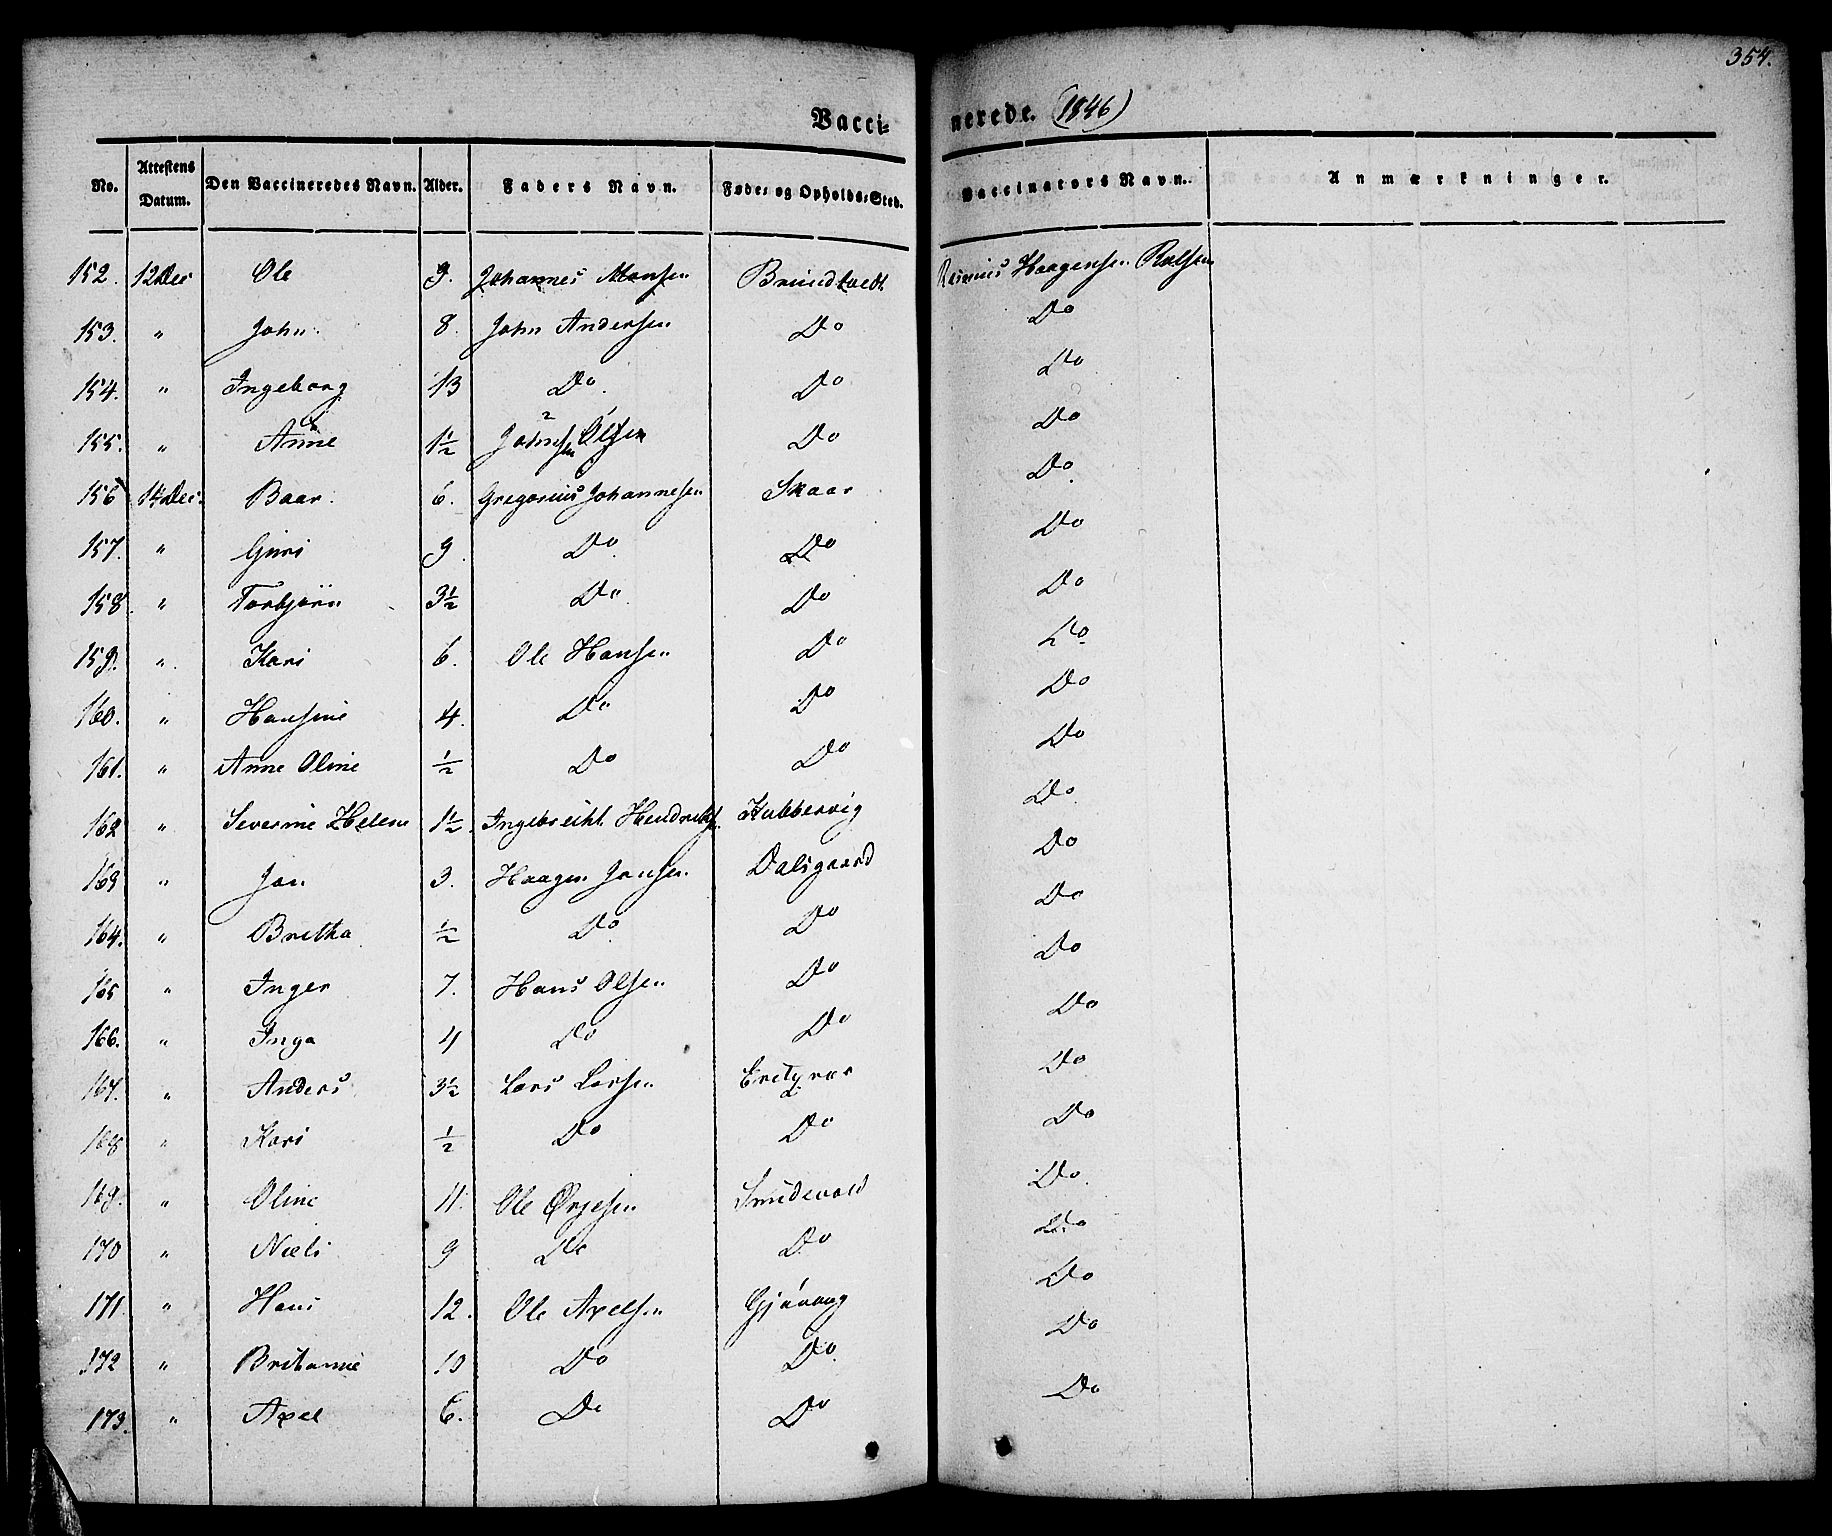 354.
Vacci= nerede. (1846)
No. Attestens Datum. Den Vaccineredes Navn. Alder. Faders Navn. Føde= og Opholds=Sted. Vaccinators Navn. Anmærkninger.
152. 12 Dec Ole 9. Johannes Monsen Rasmus Haagensen Rolsen
153. " John. 8. John Andersen Do Do
154. " Ingeborg 13 Do. Do Do
155. " Anne 1½ Olsen Do Do
156 14 Dec. Baar. 6. Gregorius Johannesen Skaar Do.
157. " Guri 9. Do. Do Do
158. " Torbjørn 3½ Do. Do Do
159. " Kari 6. Ole Hansen Do Do
160. " Hansine 4. Do Do Do
161. " Anne Oline ½ Do Do Do
162 " Severine Helene 1½ Ingebreikt Hendriks. Kubbervig Do.
163 " Jon 3. Haagen Jonsen Dalsgaard Do
164. " Britha ½ Do. Do Do
165 " Inger 7. Hans Olsen Do Do
166. " Inga 4 Do Do Do
167. " Anders 3½ Lars Larsen Do
168 " Kari ½ Do Do Do
169. " Oline 11. Ole Smidevold Do.
170 " Niels 9 Do Do Do
171. " Hans 12. Ole Axelsen Do
172 " Britanne 10 Do Do Do
173. " Axel 6. Do Do Do